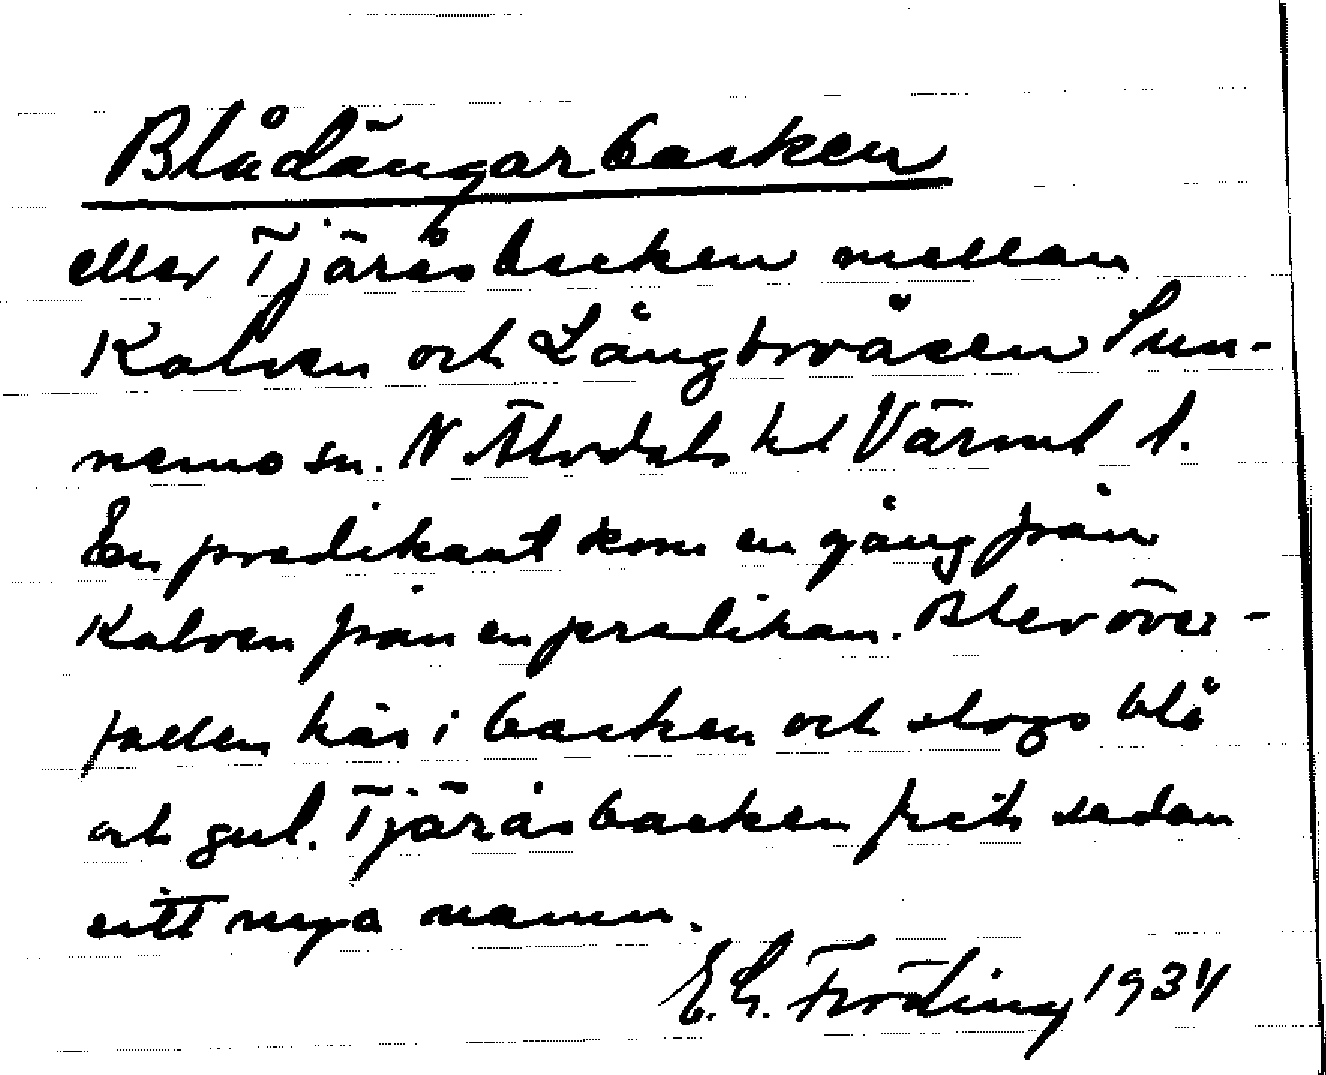 Blådängarbacken
eller Tjäråsbacken mellan
Kalven och Långbroåsen Sun-
nemo sn. N Älvdals hd Värml l.
En predikant kom en gång från
Kalven från en predikan. Blev över-
fallen här i backen och slogs blå
och gul. Tjäråsbacken fick sedan
sitt nya namn.
E.G. Fröding 1934